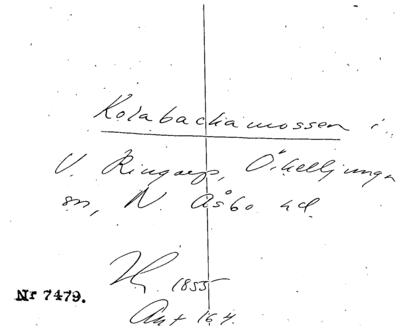 Kolabackamossen i
V. Ringarp, Örkelljunga
sn, N. Åsbo hd.
1855
Nr 7479.
Ant 164.